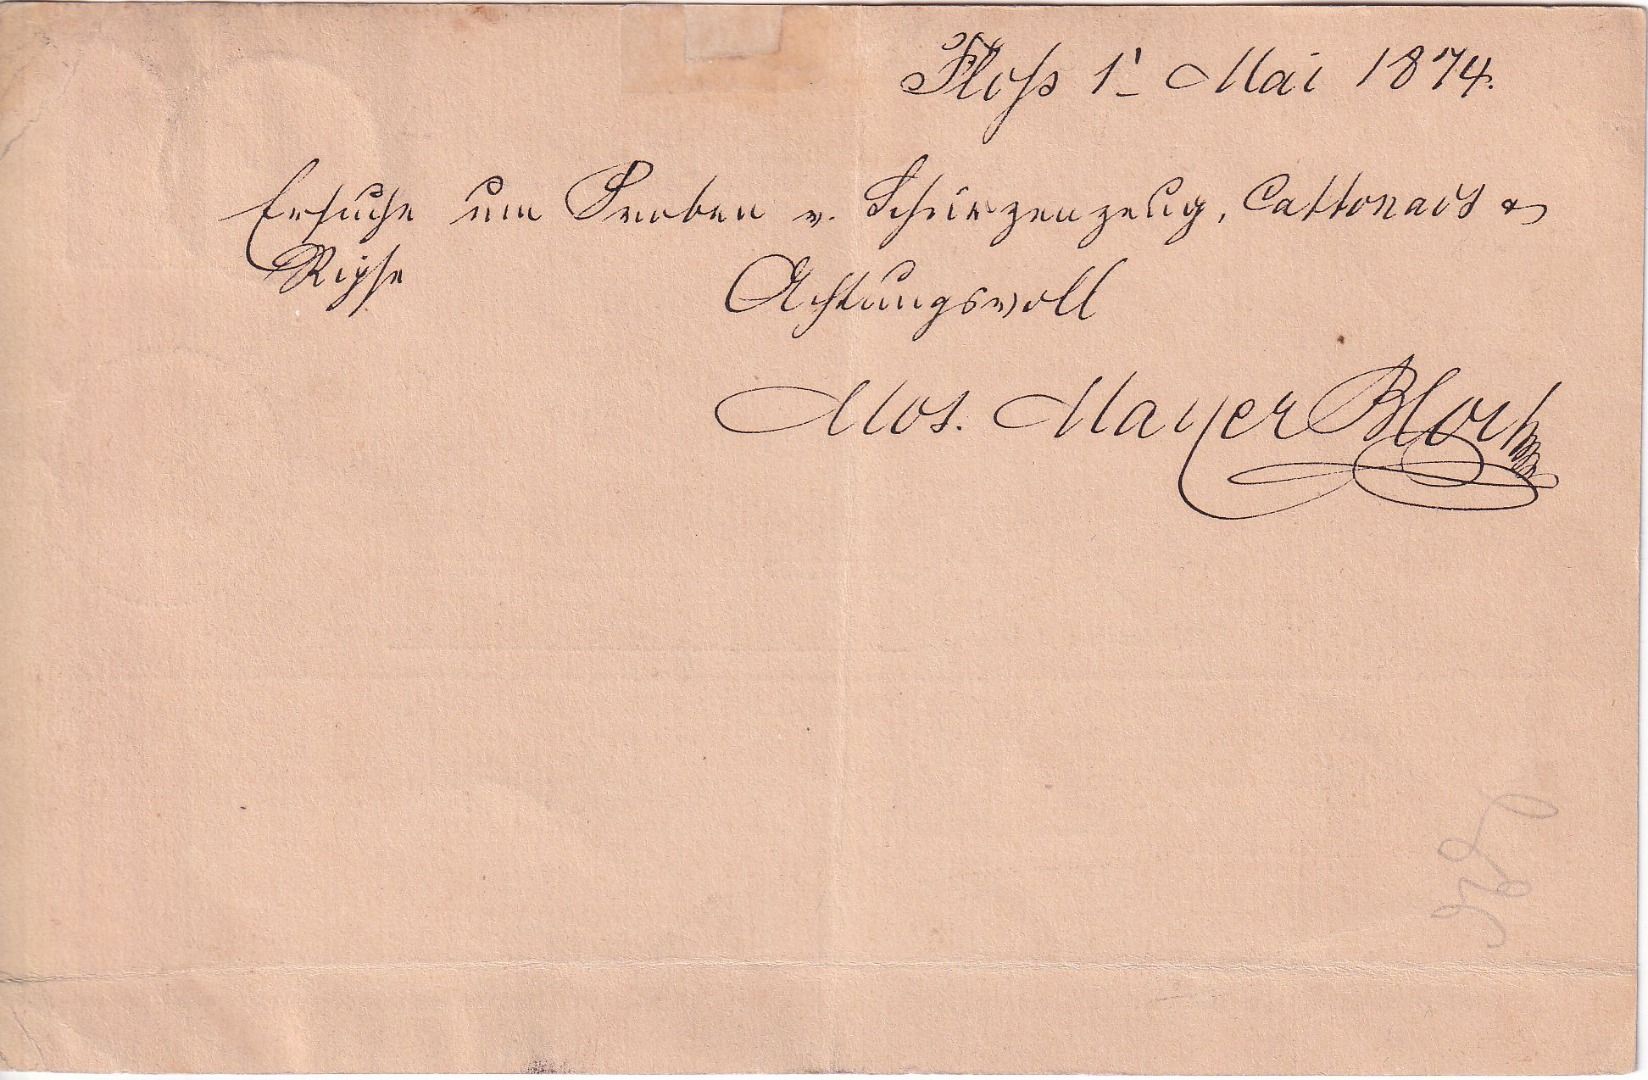 Floß 1. Mai 1874.
Ersuche um Proben v. Schürzenzeug, Cattonads &
Ripse
Achtungsvoll
Mos. Mayer Bloch